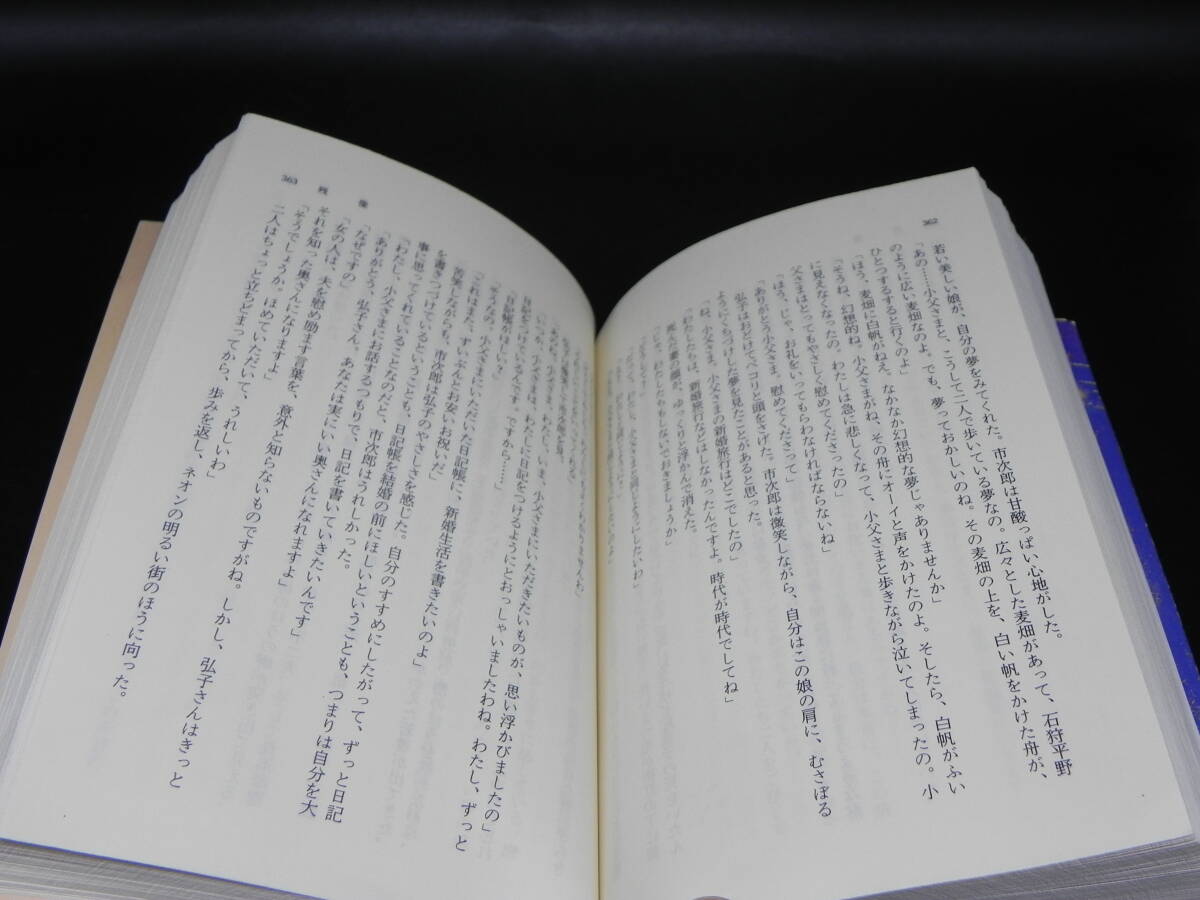 362
若い美しい娘が、自分の夢をみてくれた。市次郎は甘酸っぱい心地がした。
「あの……小父さまと、こうして二人で歩いている夢なの。広々とした麦畑があって、石狩平野
のように広い麦畑なのよ。でも、夢っておかしいのね。その麦畑の上を、白い帆をかけた舟が、
ひとつするすると行くのよ」
「ほう、麦畑に白帆がねえ。なかなか幻想的な夢じゃありませんか」
「そうね、幻想的ね。小父さまがね、その舟にオーイと声をかけたのよ。そしたら、白帆がふい
に見えなくなったの。わたしは急に悲しくなって、小父さまと歩きながら泣いてしまったの。小
父さまはとってもやさしく慰めてくださったの」
「ほう、じゃ、お礼をいってもらわなければならないね」
「ありがとう小父さま、慰めてくださって」
弘子はおどけてペコリと頭をさげた。市次郎は微笑しながら、自分はこの娘の肩に、むさぼる
ようにくちづけした夢を見たことがあると思った。
「ね、小父さま、小父さまの新婚旅行はどこでしたの」
「わたしたちは、新婚旅行などはしなかったんですよ。時代が時代でしてね」
死んだ妻の顔が、ゆっくりと浮かんで消えた。
「じゃ、わたしたちもしないでおきましょうか」
363 残像
「日記をつけているんです。ですから……」
「そうなの。小父さま、わたしに日記をつけるようにとおっしゃいましたわね。わたし、ずっと
「日記帳がほしい？」
「小父さまにいただいた日記帳に、新婚生活を書きたいのよ」
「これはまた、ずいぶんとお安いお祝いだ」
苦笑しながらも、市次郎は弘子のやさしさを感じた。自分のすすめにしたがって、ずっと日記
を書きつづけているということも、日記帳を結婚の前にほしいということも、つまりは自分を大
事に思ってくれていることなのだと、市次郎はうれしかった。
「わたし、小父さまにお話するつもりで、日記を書いていきたいんです」
「ありがとう、弘子さん。あなたは実にいい奥さんになれますよ」
「なぜですの」
「女の人は、夫を慰め励ます言葉を、意外と知らないものですがね。しかし、弘子さんはきっと
それを知った奥さんになりますよ」
「そうでしょうか。ほめていただいて、うれしいわ」
二人はちょっと立ちどまってから、歩みを返し、ネオンの明るい街のほうに向った。